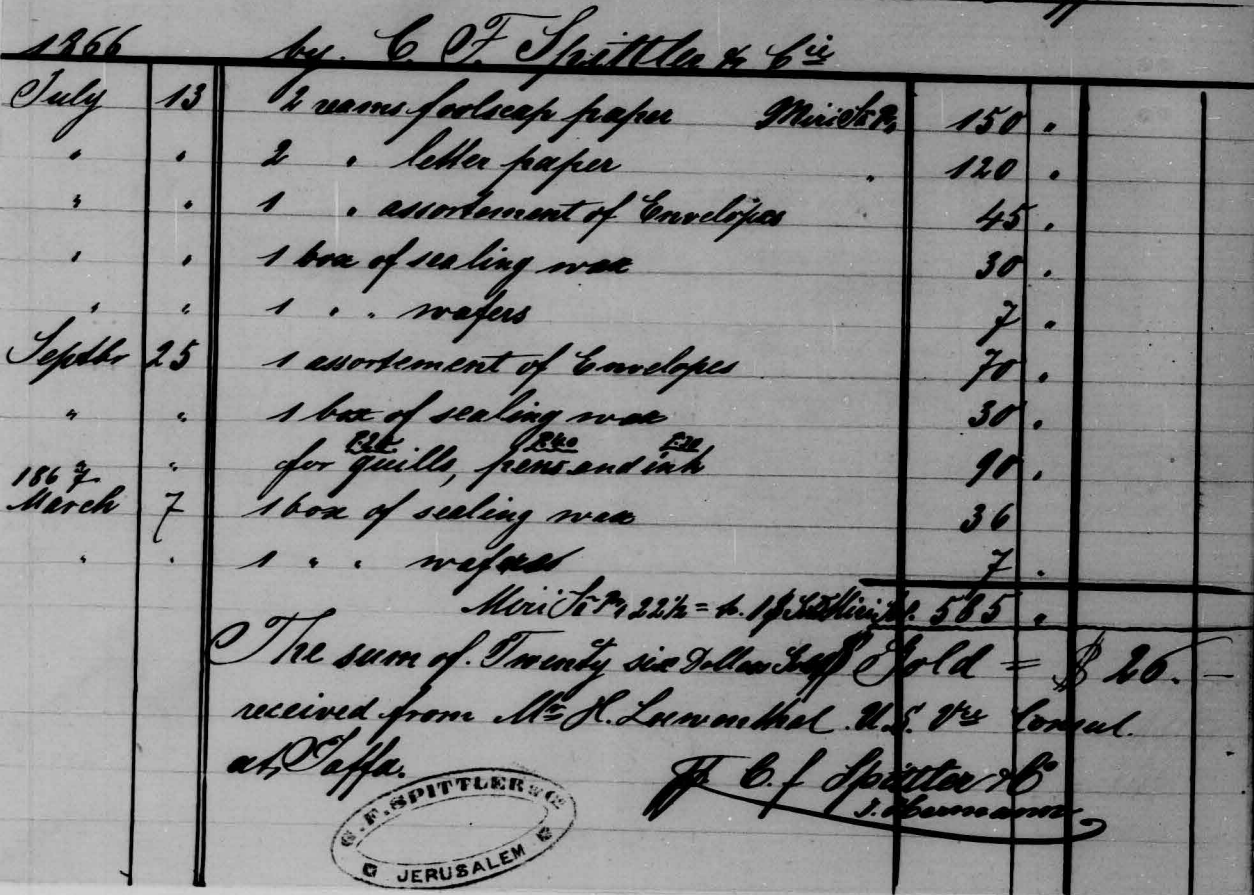 1866 by. C. F. Spittler & Cie
July 13 2 reams foolscap paper Miri 150 .
" " 2 " letter paper " 120 .
" " 1 " assortement of Envelopes 45 .
" " 1 box of sealing wax 30 .
" " 1 " " wafers 7 .
Septbr 25 1 assortement of Envelopes 70 .
" " 1 box of sealing wax 30 .
" " for quills, pens and ink 90 .
1867
March 7 1 box of sealing wax 36
" " 1 " " wafers 7 .
Miri 22½ = 585 .
The sum of Twenty six Dollars Gold = $ 26. —
received from Mr H. Loewenthal U.S. Vice Consul
at Jaffa.
C. f Spittler & Co
J. Hermann
C. F. SPITTLER & Co
JERUSALEM